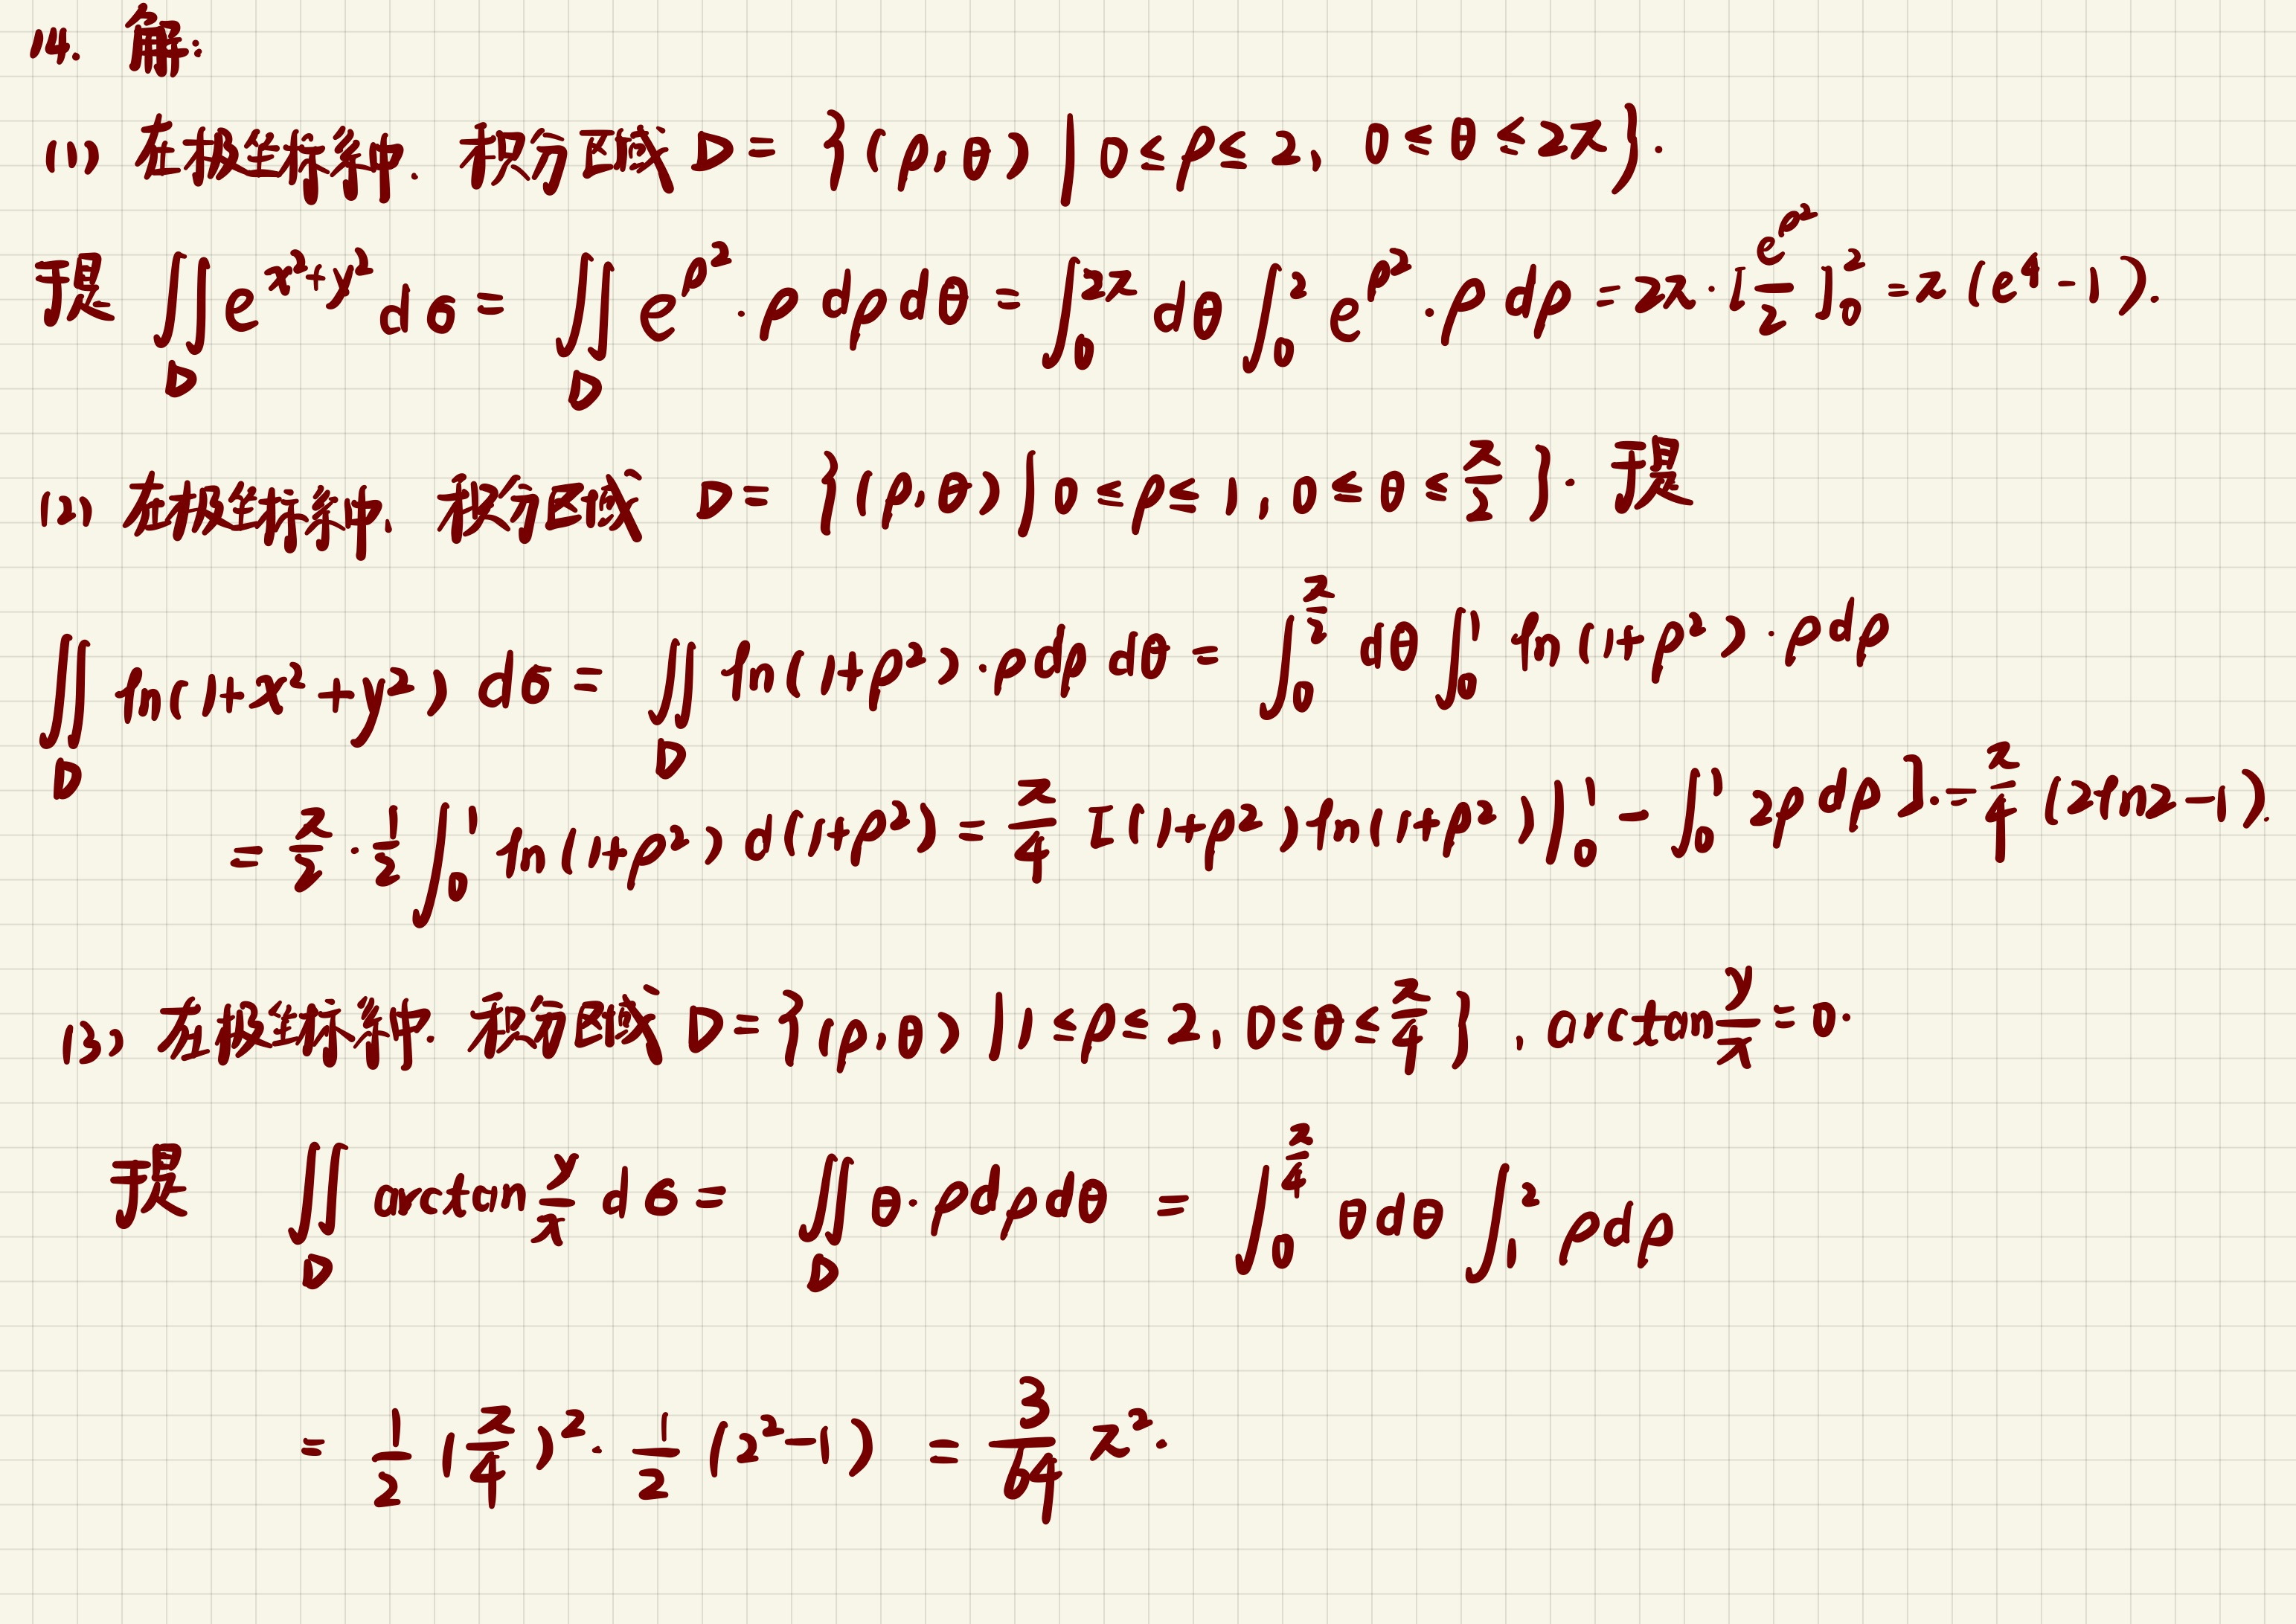 14. 解:
(1) 在极坐标系中. 积分区域 D = {(ρ, θ) | 0 ≤ ρ ≤ 2, 0 ≤ θ ≤ 2π}.
于是 ∬_D e^{x²+y²} dσ = ∬_D e^{ρ²} · ρ dρ dθ = ∫_0^{2π} dθ ∫_0^2 e^{ρ²} · ρ dρ = 2π · [e^{ρ²}/2]_0^2 = π (e⁴ - 1).
(2) 在极坐标系中. 积分区域 D = {(ρ, θ) | 0 ≤ ρ ≤ 1, 0 ≤ θ ≤ π/2}. 于是
∬_D ln(1+x²+y²) dσ = ∬_D ln(1+ρ²) · ρ dρ dθ = ∫_0^{π/2} dθ ∫_0^1 ln(1+ρ²) · ρ dρ
= π/2 · 1/2 ∫_0^1 ln(1+ρ²) d(1+ρ²) = π/4 [(1+ρ²) ln(1+ρ²)|_0^1 - ∫_0^1 2ρ dρ]. = π/4 (2ln2 - 1).
(3) 在极坐标系中. 积分区域 D = {(ρ, θ) | 1 ≤ ρ ≤ 2, 0 ≤ θ ≤ π/4}, arctan y/x = 0.
于是 ∬_D arctan y/x dσ = ∬_D θ · ρ dρ dθ = ∫_0^{π/4} θ dθ ∫_1^2 ρ dρ
= 1/2 (π/4)² · 1/2 (2² - 1) = 3/64 π².